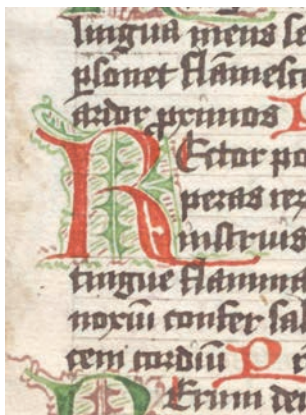 lingua mens se
ꝑsonet flāmesc
ardor ꝓximos P
REctor po
peras rer
nistruis
tingue flamma
noxiū confer sal
cem cordiū P e
Rerum de